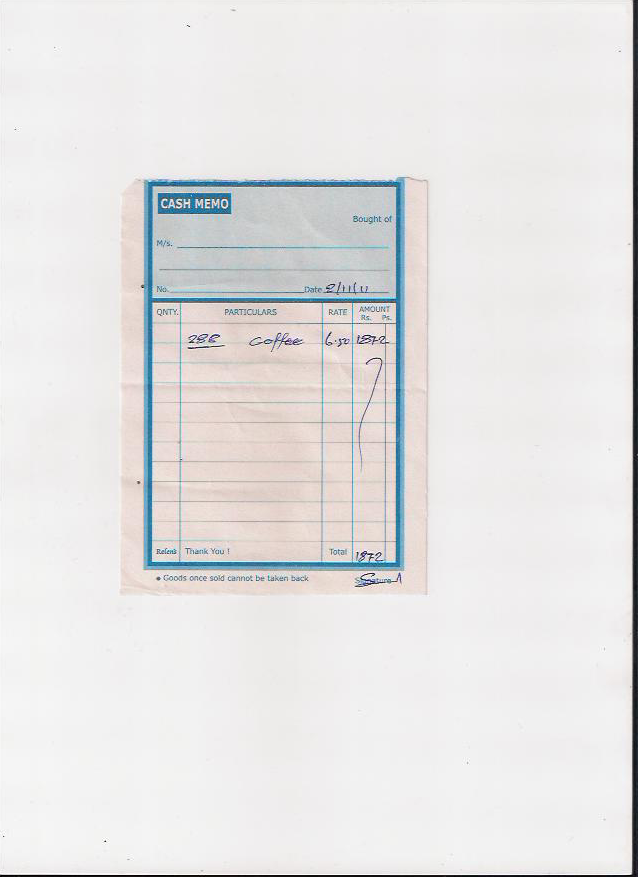 CASH MEMO
Bought of
M/s.
No. Date 2/11/11
QNTY. PARTICULARS RATE AMOUNT
Rs. Ps.
288 coffee 6.50 1872
Relen's Thank You ! Total 1872
• Goods once sold cannot be taken back Signature